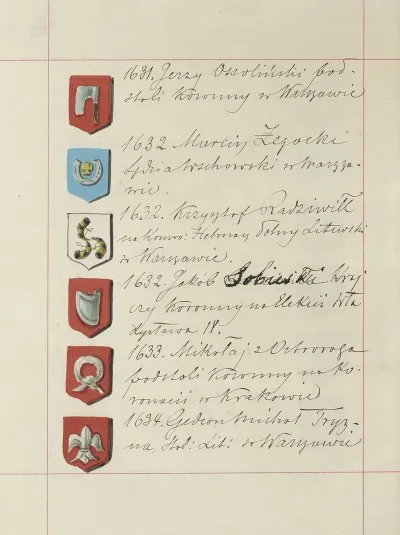 1631. Jerzy Ossoliński pod-
stoli Koronny w Warszawie
1632 Marcin Żegocki
Sędzia Wschowski w Warsza-
wie.
1632. Krzysztof Radziwiłł
na Konwo: Hetman Polny Litewski
w Warszawie.
1632. Jakób Sobieski Kraj-
czy Koronny na Elekcii Wła
dysława IV.
1633. Mikołaj z Ostroroga
podstoli Koronny na Ko-
ronacii w Krakowie
1634. Gedeon Michał Tryz-
na Stol: Lit: w Warszawie